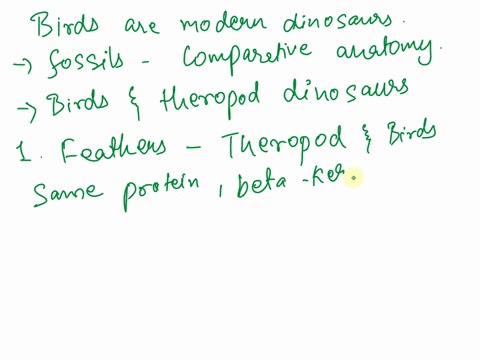 Birds are modern dinosaurs.
→ fossils - Comparetive anatomy.
→ Birds & theropod dinosaurs
1. Feathers - Theropod & Birds
Same protein, beta-Ker